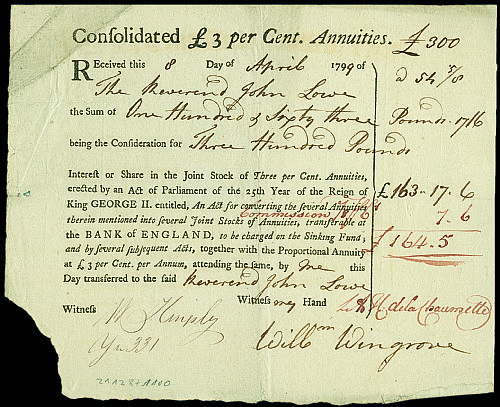 Consolidated £3 per Cent. Annuities. £300
RECEIVED this 8 Day of April 1799 of @ 54 5/8
The Reverend John Lowe
the Sum of One Hundred & Sixty three Pounds 17/6
being the Consideration for Three Hundred Pounds
Interest or Share in the Joint Stock of Three per Cent. Annuities,
erected by an Act of Parliament of the 25th Year of the Reign of £163-17-6
King GEORGE II. entitled, An Act for converting the several Annuities
therein mentioned into several Joint Stocks of Annuities, transferable at Commission 7/6 7-6
the BANK of ENGLAND, to be charged on the Sinking Fund; £164-5
and by several subsequent Acts, together with the Proportional Annuity
at £3 per Cent. per Annum, attending the same, by me this
Day transferred to the said Reverend John Lowe
Witness my Hand
Witness
Willm Wingrove